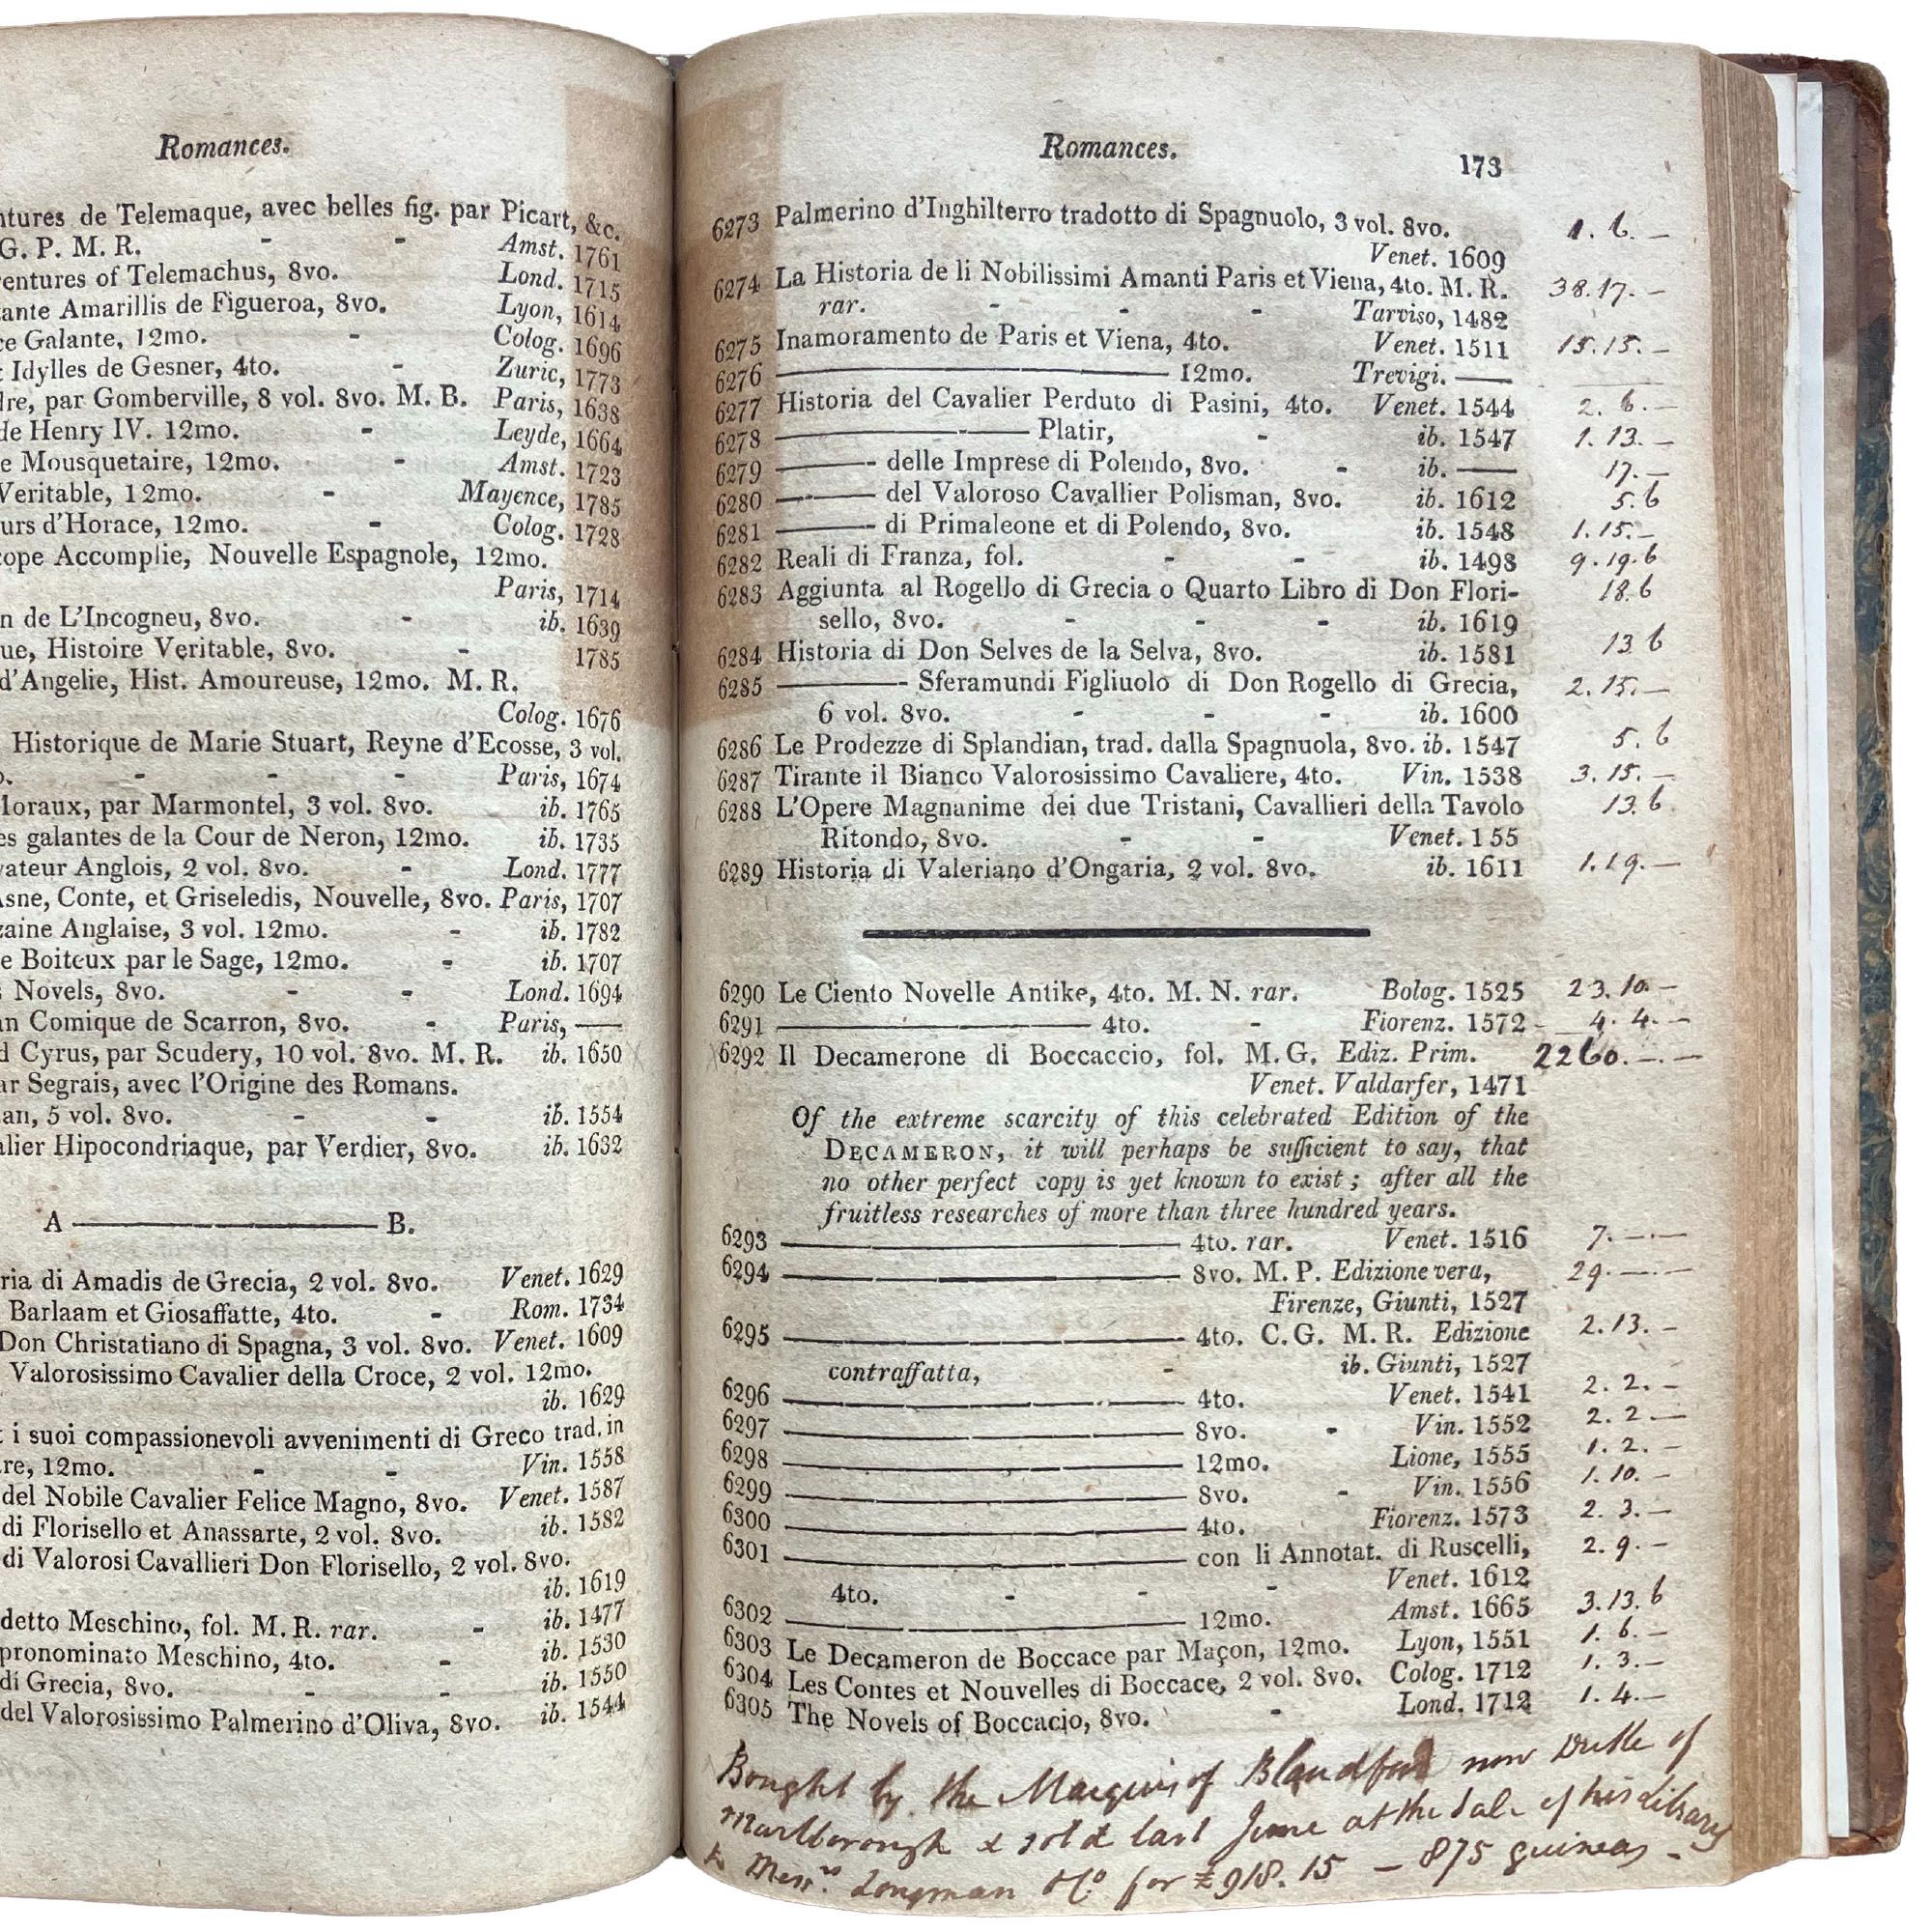 Romances.
ntures de Telemaque, avec belles fig. par Picart, &c.
G. P. M. R. - - Amst. 1761
entures of Telemachus, 8vo. Lond. 1715
tante Amarillis de Figueroa, 8vo. Lyon, 1614
ce Galante, 12mo. - Colog. 1696
t Idylles de Gesner, 4to. - Zuric, 1773
dre, par Gomberville, 8 vol. 8vo. M. B. Paris, 1638
de Henry IV. 12mo. - Leyde, 1664
e Mousquetaire, 12mo. - Amst. 1723
Veritable, 12mo. - Mayence, 1785
urs d'Horace, 12mo. - Colog. 1728
cope Accomplie, Nouvelle Espagnole, 12mo.
Paris, 1714
n de L'Incogneu, 8vo. - ib. 1639
ue, Histoire Veritable, 8vo. - 1785
d'Angelie, Hist. Amoureuse, 12mo. M. R.
Colog. 1676
Historique de Marie Stuart, Reyne d'Ecosse, 3 vol.
o. - - - Paris, 1674
Moraux, par Marmontel, 3 vol. 8vo. ib. 1765
es galantes de la Cour de Neron, 12mo. ib. 1735
vateur Anglois, 2 vol. 8vo. - Lond. 1777
Asne, Conte, et Griseledis, Nouvelle, 8vo. Paris, 1707
zaine Anglaise, 3 vol. 12mo. - ib. 1782
e Boiteux par le Sage, 12mo. - ib. 1707
s Novels, 8vo. - - Lond. 1694
an Comique de Scarron, 8vo. - Paris, ——
d Cyrus, par Scudery, 10 vol. 8vo. M. R. ib. 1650
ar Segrais, avec l'Origine des Romans.
an, 5 vol. 8vo. - - ib. 1554
alier Hipocondriaque, par Verdier, 8vo. ib. 1632
A ———— B.
ria di Amadis de Grecia, 2 vol. 8vo. Venet. 1629
Barlaam et Giosaffatte, 4to. - Rom. 1734
Don Christatiano di Spagna, 3 vol. 8vo. Venet. 1609
Valorosissimo Cavalier della Croce, 2 vol. 12mo.
ib. 1629
t i suoi compassionevoli avvenimenti di Greco trad. in
re, 12mo. - - Vin. 1558
del Nobile Cavalier Felice Magno, 8vo. Venet. 1587
di Florisello et Anassarte, 2 vol. 8vo. ib. 1582
di Valorosi Cavallieri Don Florisello, 2 vol. 8vo.
ib. 1619
detto Meschino, fol. M. R. rar. - ib. 1477
pronominato Meschino, 4to. - ib. 1530
di Grecia, 8vo. - - ib. 1550
del Valorosissimo Palmerino d'Oliva, 8vo. ib. 1544
Romances. 173
6273 Palmerino d'Inghilterro tradotto di Spagnuolo, 3 vol. 8vo. 1. 6. —
Venet. 1609
6274 La Historia de li Nobilissimi Amanti Paris et Viena, 4to. M. R. 38.17. —
rar. - - - Tarviso, 1482
6275 Inamoramento de Paris et Viena, 4to. Venet. 1511 15.15. —
6276 ———— 12mo. Trevigi. ——
6277 Historia del Cavalier Perduto di Pasini, 4to. Venet. 1544 2. 6. —
6278 ———— Platir, - ib. 1547 1. 13. —
6279 ——— delle Imprese di Polendo, 8vo. - ib. —— 17. —
6280 ——— del Valoroso Cavallier Polisman, 8vo. ib. 1612 5. 6
6281 ——— di Primaleone et di Polendo, 8vo. ib. 1548 1. 15. —
6282 Reali di Franza, fol. - - ib. 1498 9. 19. 6
6283 Aggiunta al Rogello di Grecia o Quarto Libro di Don Flori- 18. 6
sello, 8vo. - - - ib. 1619
6284 Historia di Don Selves de la Selva, 8vo. ib. 1581 13 6
6285 ———— Sferamundi Figliuolo di Don Rogello di Grecia, 2. 15. —
6 vol. 8vo. - - - ib. 1600
6286 Le Prodezze di Splandian, trad. dalla Spagnuola, 8vo. ib. 1547 5. 6
6287 Tirante il Bianco Valorosissimo Cavaliere, 4to. Vin. 1538 3. 15. —
6288 L'Opere Magnanime dei due Tristani, Cavallieri della Tavolo 13. 6
Ritondo, 8vo. - - Venet. 155
6289 Historia di Valeriano d'Ongaria, 2 vol. 8vo. ib. 1611 1. 19. —
6290 Le Ciento Novelle Antike, 4to. M. N. rar. Bolog. 1525 23. 10 —
6291 ———— 4to. - Fiorenz. 1572 4. 4. —
6292 Il Decamerone di Boccaccio, fol. M. G. Ediz. Prim. 2260. —. —
Venet. Valdarfer, 1471
Of the extreme scarcity of this celebrated Edition of the
DECAMERON, it will perhaps be sufficient to say, that
no other perfect copy is yet known to exist; after all the
fruitless researches of more than three hundred years.
6293 ———— 4to. rar. Venet. 1516 7. —. —
6294 ———— 8vo. M. P. Edizione vera, 29. —. —
Firenze, Giunti, 1527
6295 ———— 4to. C. G. M. R. Edizione 2. 13. —
contraffatta, - ib. Giunti, 1527
6296 ———— 4to. Venet. 1541 2. 2. —
6297 ———— 8vo. - Vin. 1552 2. 2 —
6298 ———— 12mo. Lione, 1555 1. 2. —
6299 ———— 8vo. - Vin. 1556 1. 10. —
6300 ———— 4to. Fiorenz. 1573 2. 3. —
6301 ———— con li Annotat. di Ruscelli, 2. 9. —
4to. - - - Venet. 1612
6302 ———— 12mo. Amst. 1665 3. 13. 6
6303 Le Decameron de Boccace par Maçon, 12mo. Lyon, 1551 1. 6. —
6304 Les Contes et Nouvelles di Boccace, 2 vol. 8vo. Colog. 1712 1. 3. —
6305 The Novels of Boccacio, 8vo. - Lond. 1712 1. 4. —
Bought by the Marquis of Blandford now Duke of
Marlborough & sold last June at the Sale of his Library
to Messrs. Longman & Co. for £918. 15 — 875 guineas -